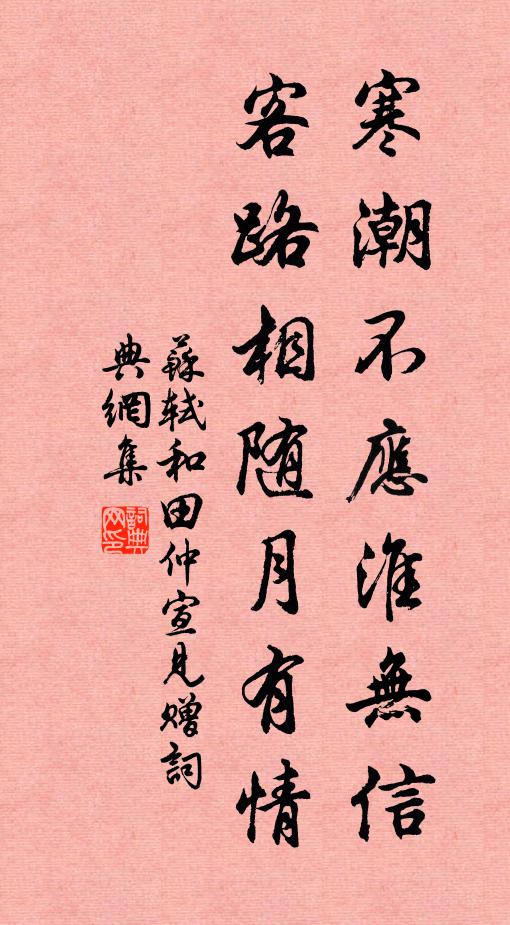 寒潮不應淮無信
客路相随月有情
蘇軾和田仲宣見贈詞
典網集
詞典網印